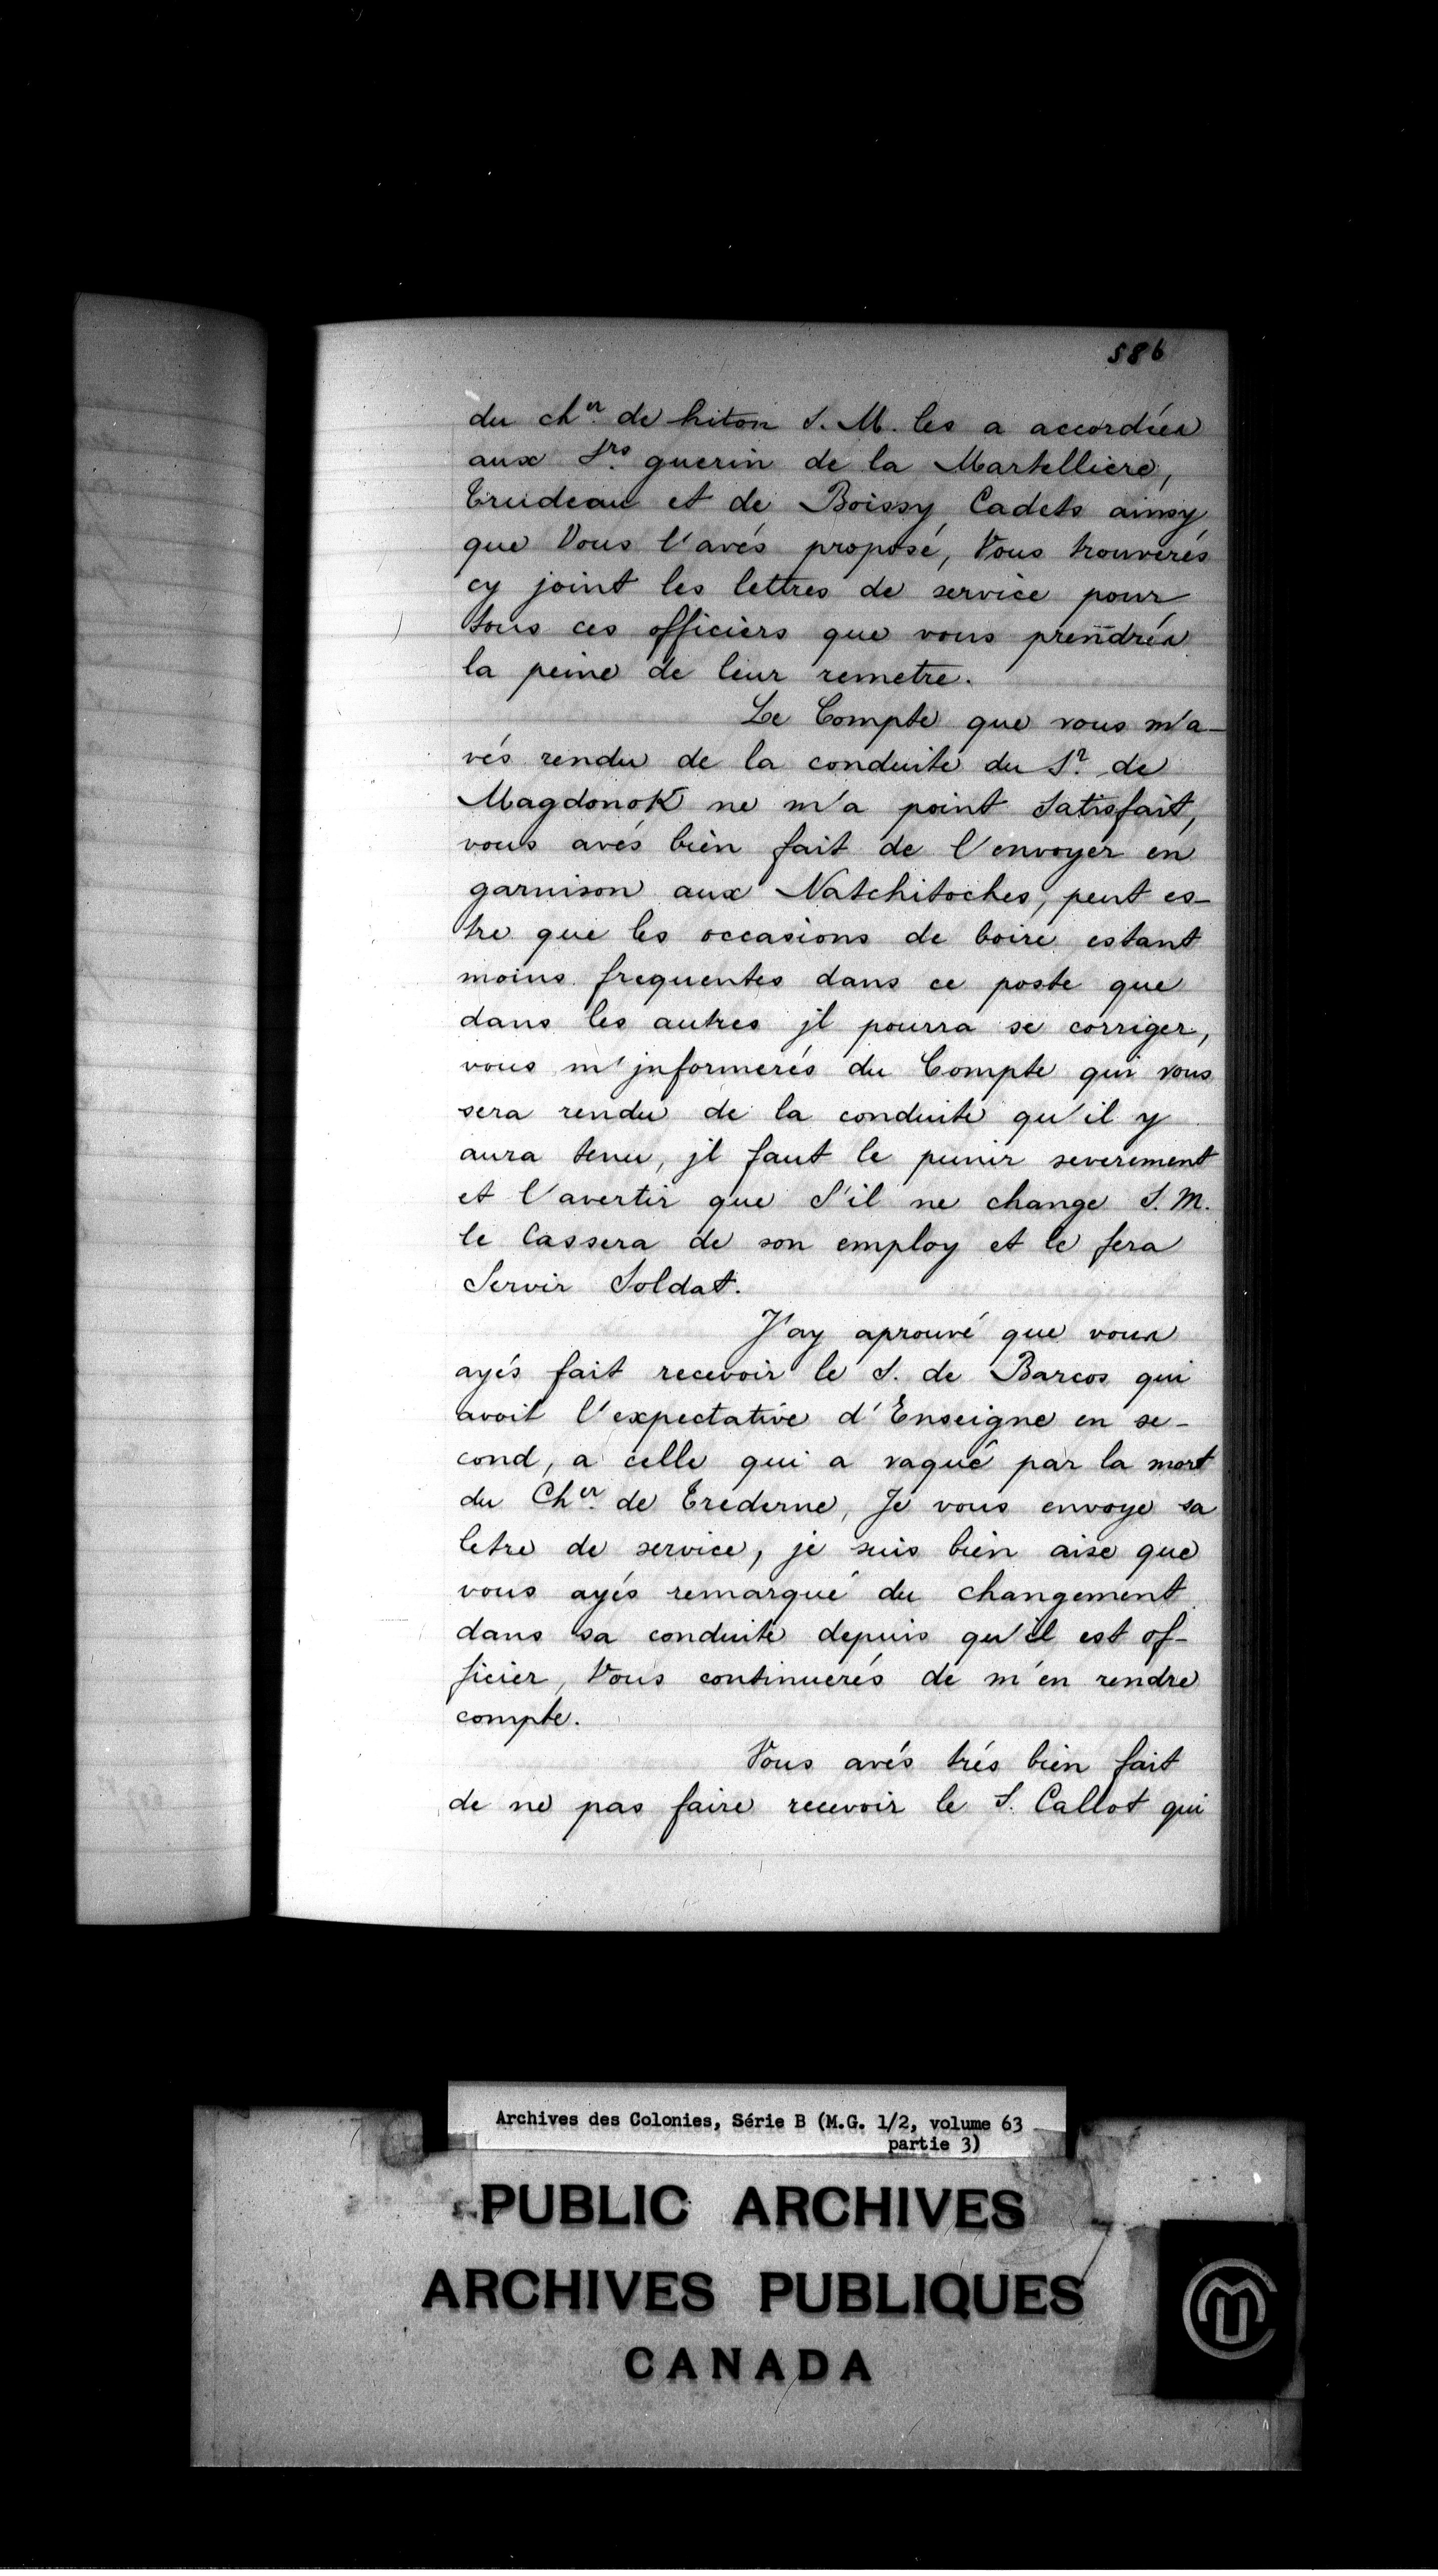 586
du cher. de hiton S. M. les a accordées
aux Srs. guerin de la Martelliere,
Trudeau et de Boissy Cadets ainsy
que Vous l'avés proposé, Vous trouverés
cy joint les lettres de service pour
tous ces officiers que vous prendrés
la peine de leur remetre.
Le Compte que vous m'a-
vés rendu de la conduite du Sr. de
Magdonok ne m'a point Satisfait,
vous avés bien fait de l'envoyer en
garnison aux Natchitoches, peut es-
tre que les occasions de boire estant
moins frequentes dans ce poste que
dans les autres jl pourra se corriger,
vous m'jnformerés du Compte qui vous
sera rendu de la conduite qu'il y
aura tenu, jl faut le punir severement
et l'avertir que S'il ne change S. M.
le Cassera de son employ et le fera
Servir Soldat.
J'ay aprouvé que vous
ayés fait recevoir le S. de Barcos qui
avoit l'expectative d'Enseigne en se-
cond, a celle qui a vaqué par la mort
du Cher. de Trederne, Je vous envoye sa
letre de service, je suis bien aise que
vous ayés remarqué du changement
dans sa conduite depuis qu'il est of-
ficier, Vous continuerés de m'en rendre
compte.
Vous avés trés bien fait
de ne pas faire recevoir le S. Callot qui
Archives des Colonies, Série B (M.G. 1/2, volume 63
partie 3)
PUBLIC ARCHIVES
ARCHIVES PUBLIQUES
CANADA